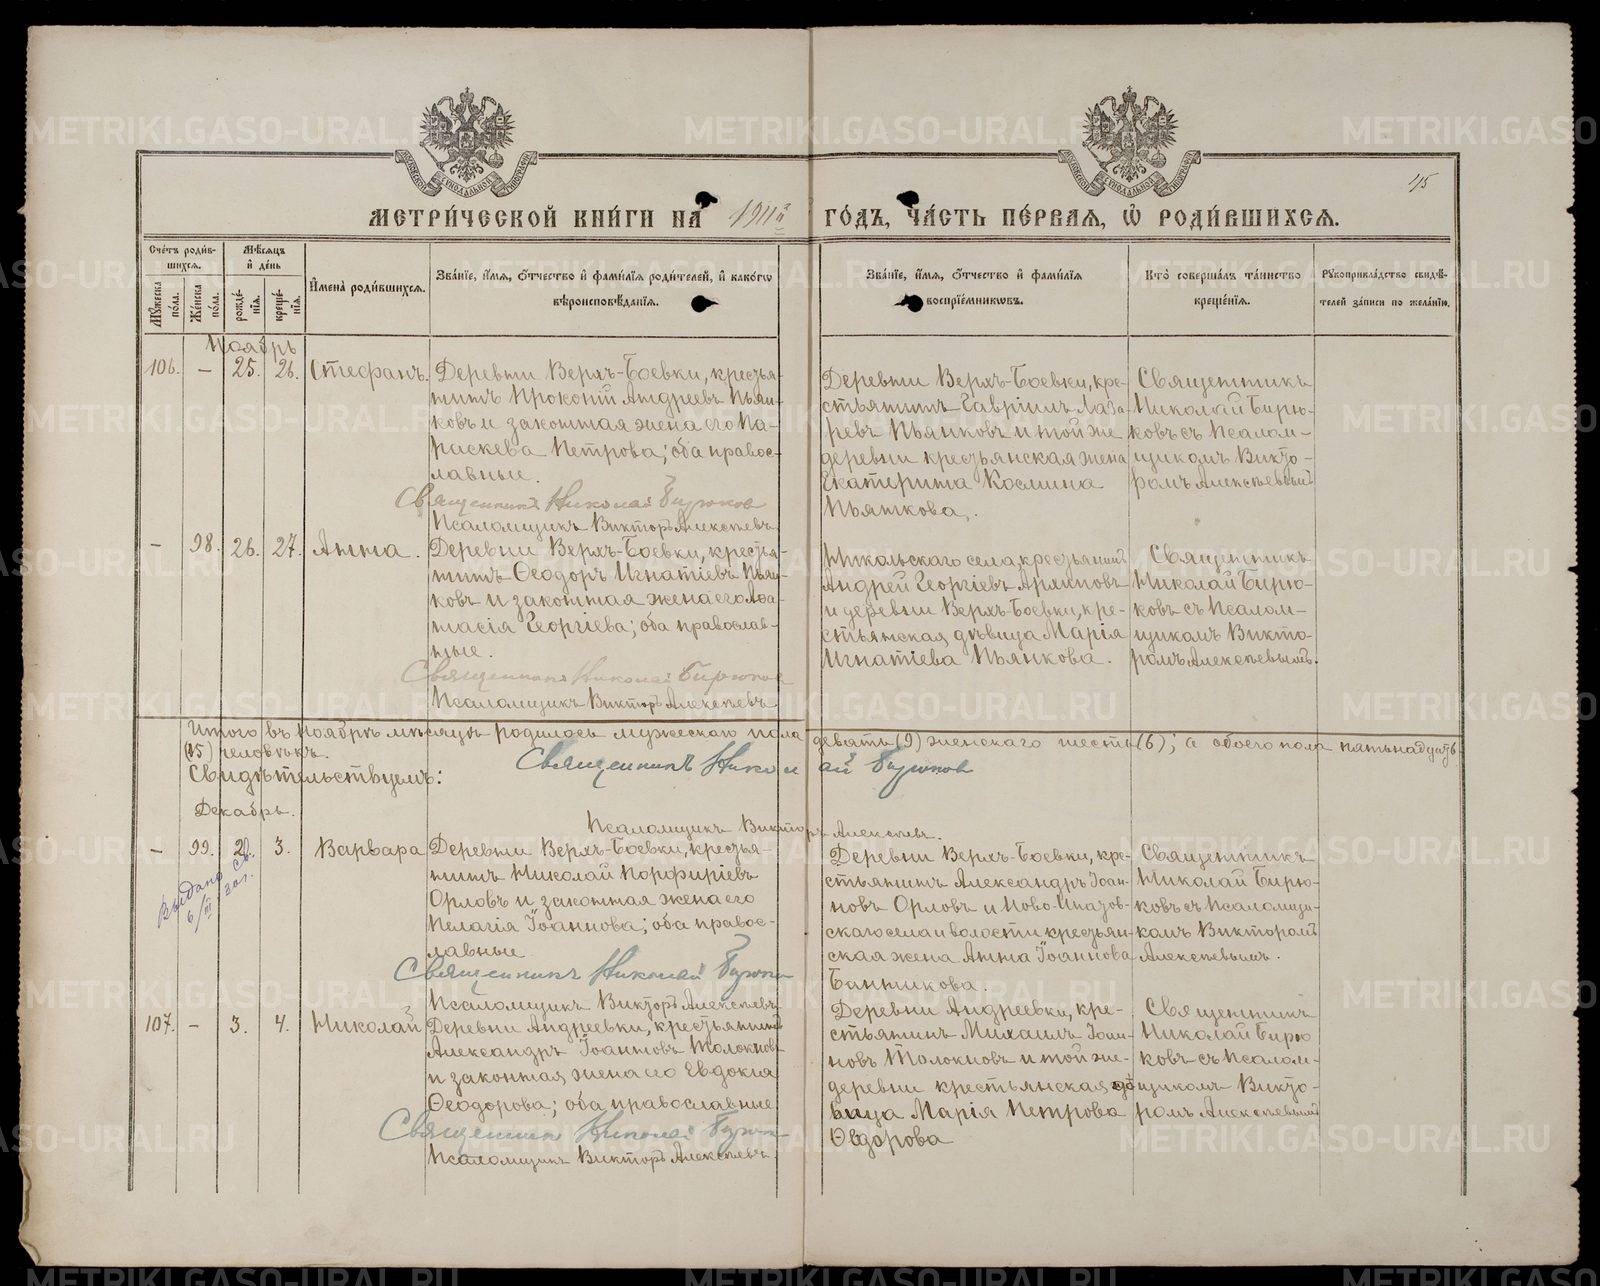 45
МЕТРИ́ЧЕСКОЙ КНИ́ГИ НА 1911й ГО́ДЪ, ЧА́СТЬ ПЕ́РВАЯ, Ѡ РОДИ́ВШИХСЯ.
Сче́тъ роди́в-
шихся.
Мꙋ́жеска по́ла.
Же́нска по́ла.
Мѣ́сяцъ
и де́нь
рожде́нїя.
креще́нїя.
И҆мена̀ роди́вшихся.
Зва́нїе, и҆́мя, ѻ҆́тчество и҆ фами́лїя роди́телей, и҆ како́гѡ
вѣроисповѣ́данїя.
Зва́нїе, и҆́мя, ѻ҆́тчество и҆ фами́лїя
воспрїе́мникѡвъ.
Кто̀ соверша́лъ та́инство
креще́нїя.
Рꙋкоприкла́дство свидѣ́-
телей за́писи по жела́нїю.
Ноябрь
106. – 25. 26. Стефанъ.
Деревни Верхъ-Боевки, крестья-
нинъ Прокопій Андреевъ Пьян-
ковъ и законная жена его Па-
раскева Петрова; оба правос-
лавные.
Священникъ Николай Бирюков
Псаломщикъ Викторъ Алексѣевъ
Деревни Верхъ-Боевки, кре-
стьянинъ Гавріилъ Лаза-
ревъ Пьянковъ и той же
деревни крестьянская жена
Екатерина Космина
Пьянкова.
Священникъ
Николай Бирю-
ковъ съ Псалом-
щикомъ Викто-
ромъ Алексѣевымъ
– 98. 26. 27. Анна.
Деревни Верхъ-Боевки, крестья-
нинъ Ѳеодоръ Игнатіевъ Пьян-
ковъ и законная жена его Афа-
насія Георгіева; оба православ-
ные.
Священникъ Николай Бирюков
Псаломщикъ Викторъ Алексѣевъ
Никольскаго села, крестьянинъ
Андрей Георгіевъ
и деревни Верхъ-Боевки, кре-
стьянская дѣвица Марія
Игнатіева Пьянкова.
Священникъ
Николай Бирю-
ковъ съ Псалом-
щикомъ Викто-
ромъ Алексѣевымъ.
Итого въ Ноябрѣ мѣсяцѣ родилось мужескаго пола девять (9) женскаго шесть (6); а обоего пола пятьнадцать
(15) человѣкъ.
Свидѣтельствуемъ:
Священникъ Николай Бирюков
Псаломщикъ Викторъ Алексѣевъ.
Декабрь.
– 99. 2. 3. Варвара
Выдано св.
6/III 20 г.
Деревни Верхъ-Боевки, крестья-
нинъ Николай Порфиріевъ
Орловъ и законная жена его
Пелагія Іоаннова; оба правос-
лавные
Священникъ Николай Бирюков
Псаломщикъ Викторъ Алексѣевъ
Деревни Верхъ-Боевки, кре-
стьянинъ Александръ Іоан-
новъ Орловъ и Ново-Ипатов-
скаго села и волости крестьян-
ская жена Анна Іоаннова
Банникова.
Священникъ
Николай Бирю-
ковъ съ Псаломщи-
комъ Викторомъ
Алексѣевымъ.
107. – 3. 4. Николай
Деревни Андреевки, крестьянинъ
Александръ Іоанновъ Толокновъ
и законная жена его Евдокія
Ѳеодорова; оба православные
Священникъ Николай Бирюков
Псаломщикъ Викторъ Алексѣевъ
Деревни Андреевки, кре-
стьянинъ Михаилъ Іоан-
новъ Толокновъ и той же-
деревни крестьянская дѣ-
вица Марія Петрова
Ѳедорова
Священникъ
Николай Бирю
ковъ съ Псалом-
щикомъ Викто-
ромъ Алексѣевымъ
METRIKI.GASO-URAL.RU